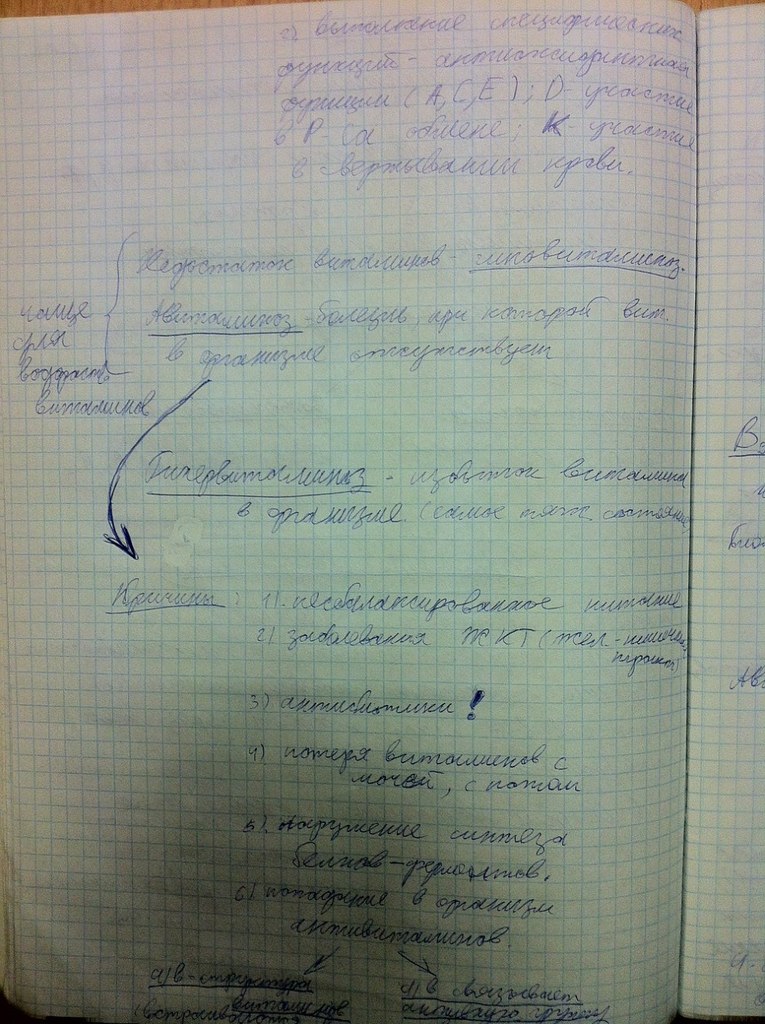 с) выполнение специфических
функций - антиоксидантная
функция (А, С, Е); D - участие
в Р Са обмене; К - участие
в свертывании крови.
Недостаток витаминов - гиповитаминоз.
Авитаминоз - болезнь, при которой вит.
в организме отсутствует
чаще
для
водораств
витаминов
Гипервитаминоз - избыток витамина
в организме (самое тяж состояние)
Причины: 1) несбалансированное питание
2) заболевания ЖКТ (жел - кишечный
3) антибиотики!
4) потеря витаминов с
мочой, с потом
5) нарушение синтеза
белков-ферментов.
6) попадание в организм
антивитаминов.
а) в-структура
витаминов
б) в связывает
активную группу